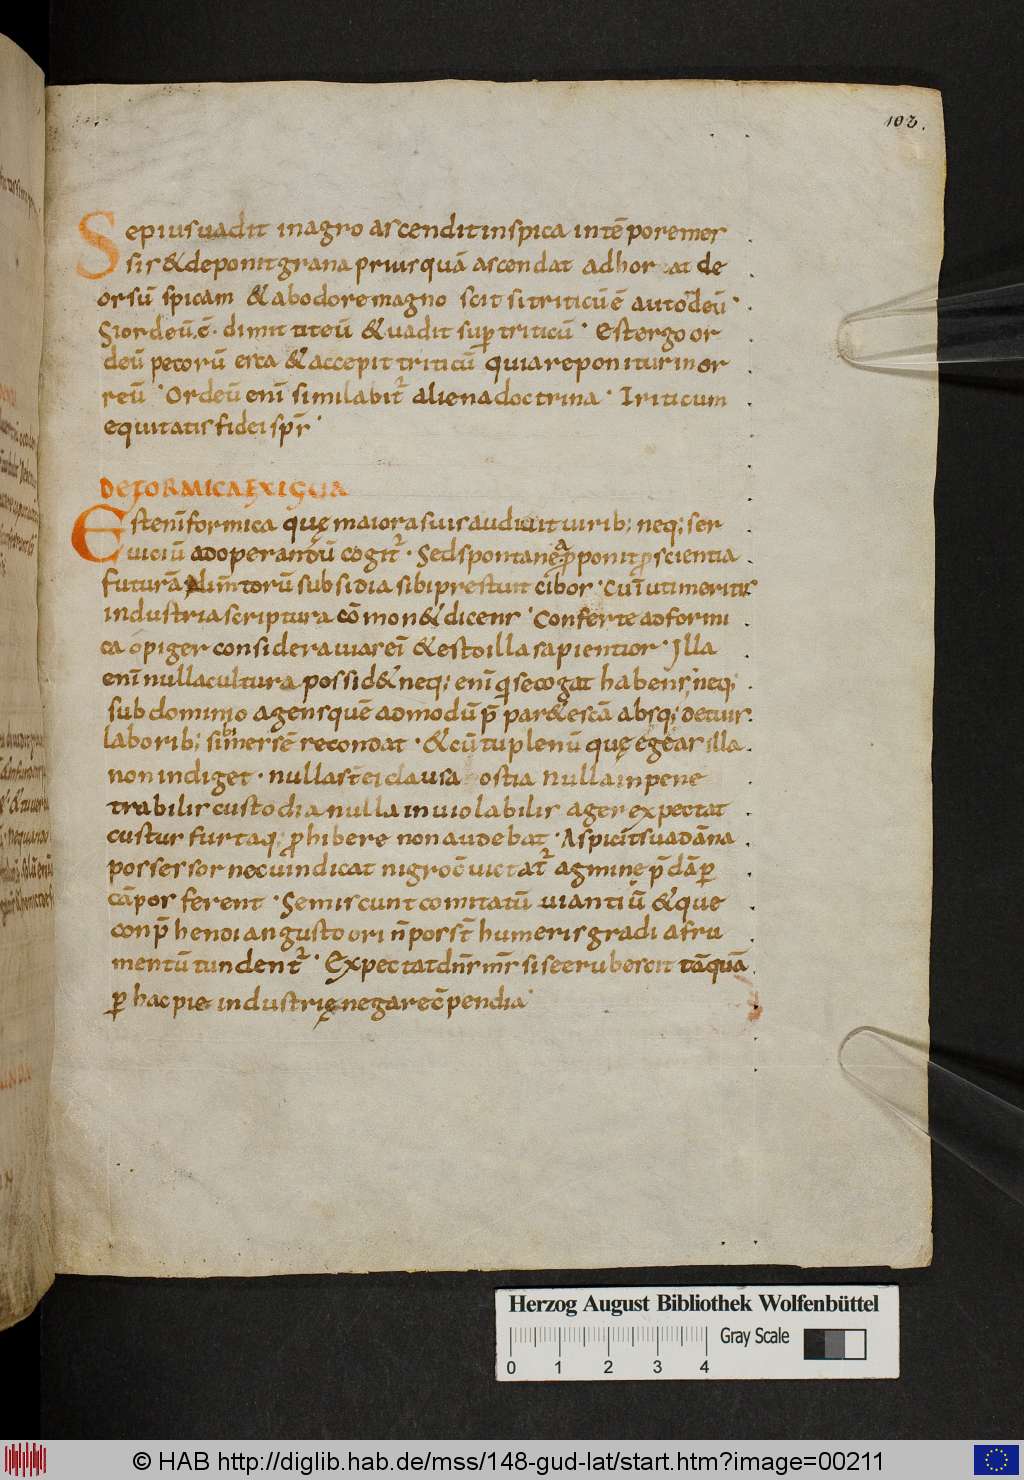 103.
Sepius uadit in agro ascendit in spica in tẽpore mes
sis & deponit grana prius quã ascendat ad hor at de
orsũ spicam & ab odore magno scit si triticũ ẽ aut ordeũ·
Si ordeũ ẽ· dimittit eũ & uadit sup triticũ· Est ergo or
deũ pecorũ esca & accepit triticũ quia reponitur in or
reũ· Ordeũ enĩ similabitᷣ aliena doctrina· Triticum
equitatis fidei spr̃·
DE FORMICA EXIGUA
Est enĩ formica quę maiora suis audiuit uirib; neq; ser
uiciũ ad operandũ cogitᷣ· Sed spontanea ꝓponit ꝓscientia
futurã alim̃torũ subsidia sibi prestuit cibor· Cuĩ ut imeritis
industria scriptura cõmon& dicens· Conferte ad formi
ca o piger considera uias eĩ & esto illa sapientior· Illa
enĩ nulla cultura possid& neq; enĩ q se cogat habens, neq;
sub dominio agens quẽ admodũ p̃ par& escã absq; detuis
laborib; sibi mersẽ recondat· & cũ tu plenũ quę egeas illa
non indiget· nulla st̃ ei clausa ostia nulla inpene
trabilis custodia nulla inuiolabilis ager expectat
custus furtaq; ꝓhibere non audebat· Aspicit̃ sua dãna
possessor nec uindicat nigro c̃uictatᷣ agmine p̃dã ꝑ
cãpos ferent· Semis cunt comitatũ uiantiũ & que
conp̃henoi angusto ori ñ posst̃ humeris gradi a fru
mentũ tundentᷣ· Expectat dñs mr̃ si se erubescit tãquã
ꝑ hac pie industrię negare c̃pendia·
Herzog August Bibliothek Wolfenbüttel
Gray Scale
0 1 2 3 4
© HAB http://diglib.hab.de/mss/148-gud-lat/start.htm?image=00211